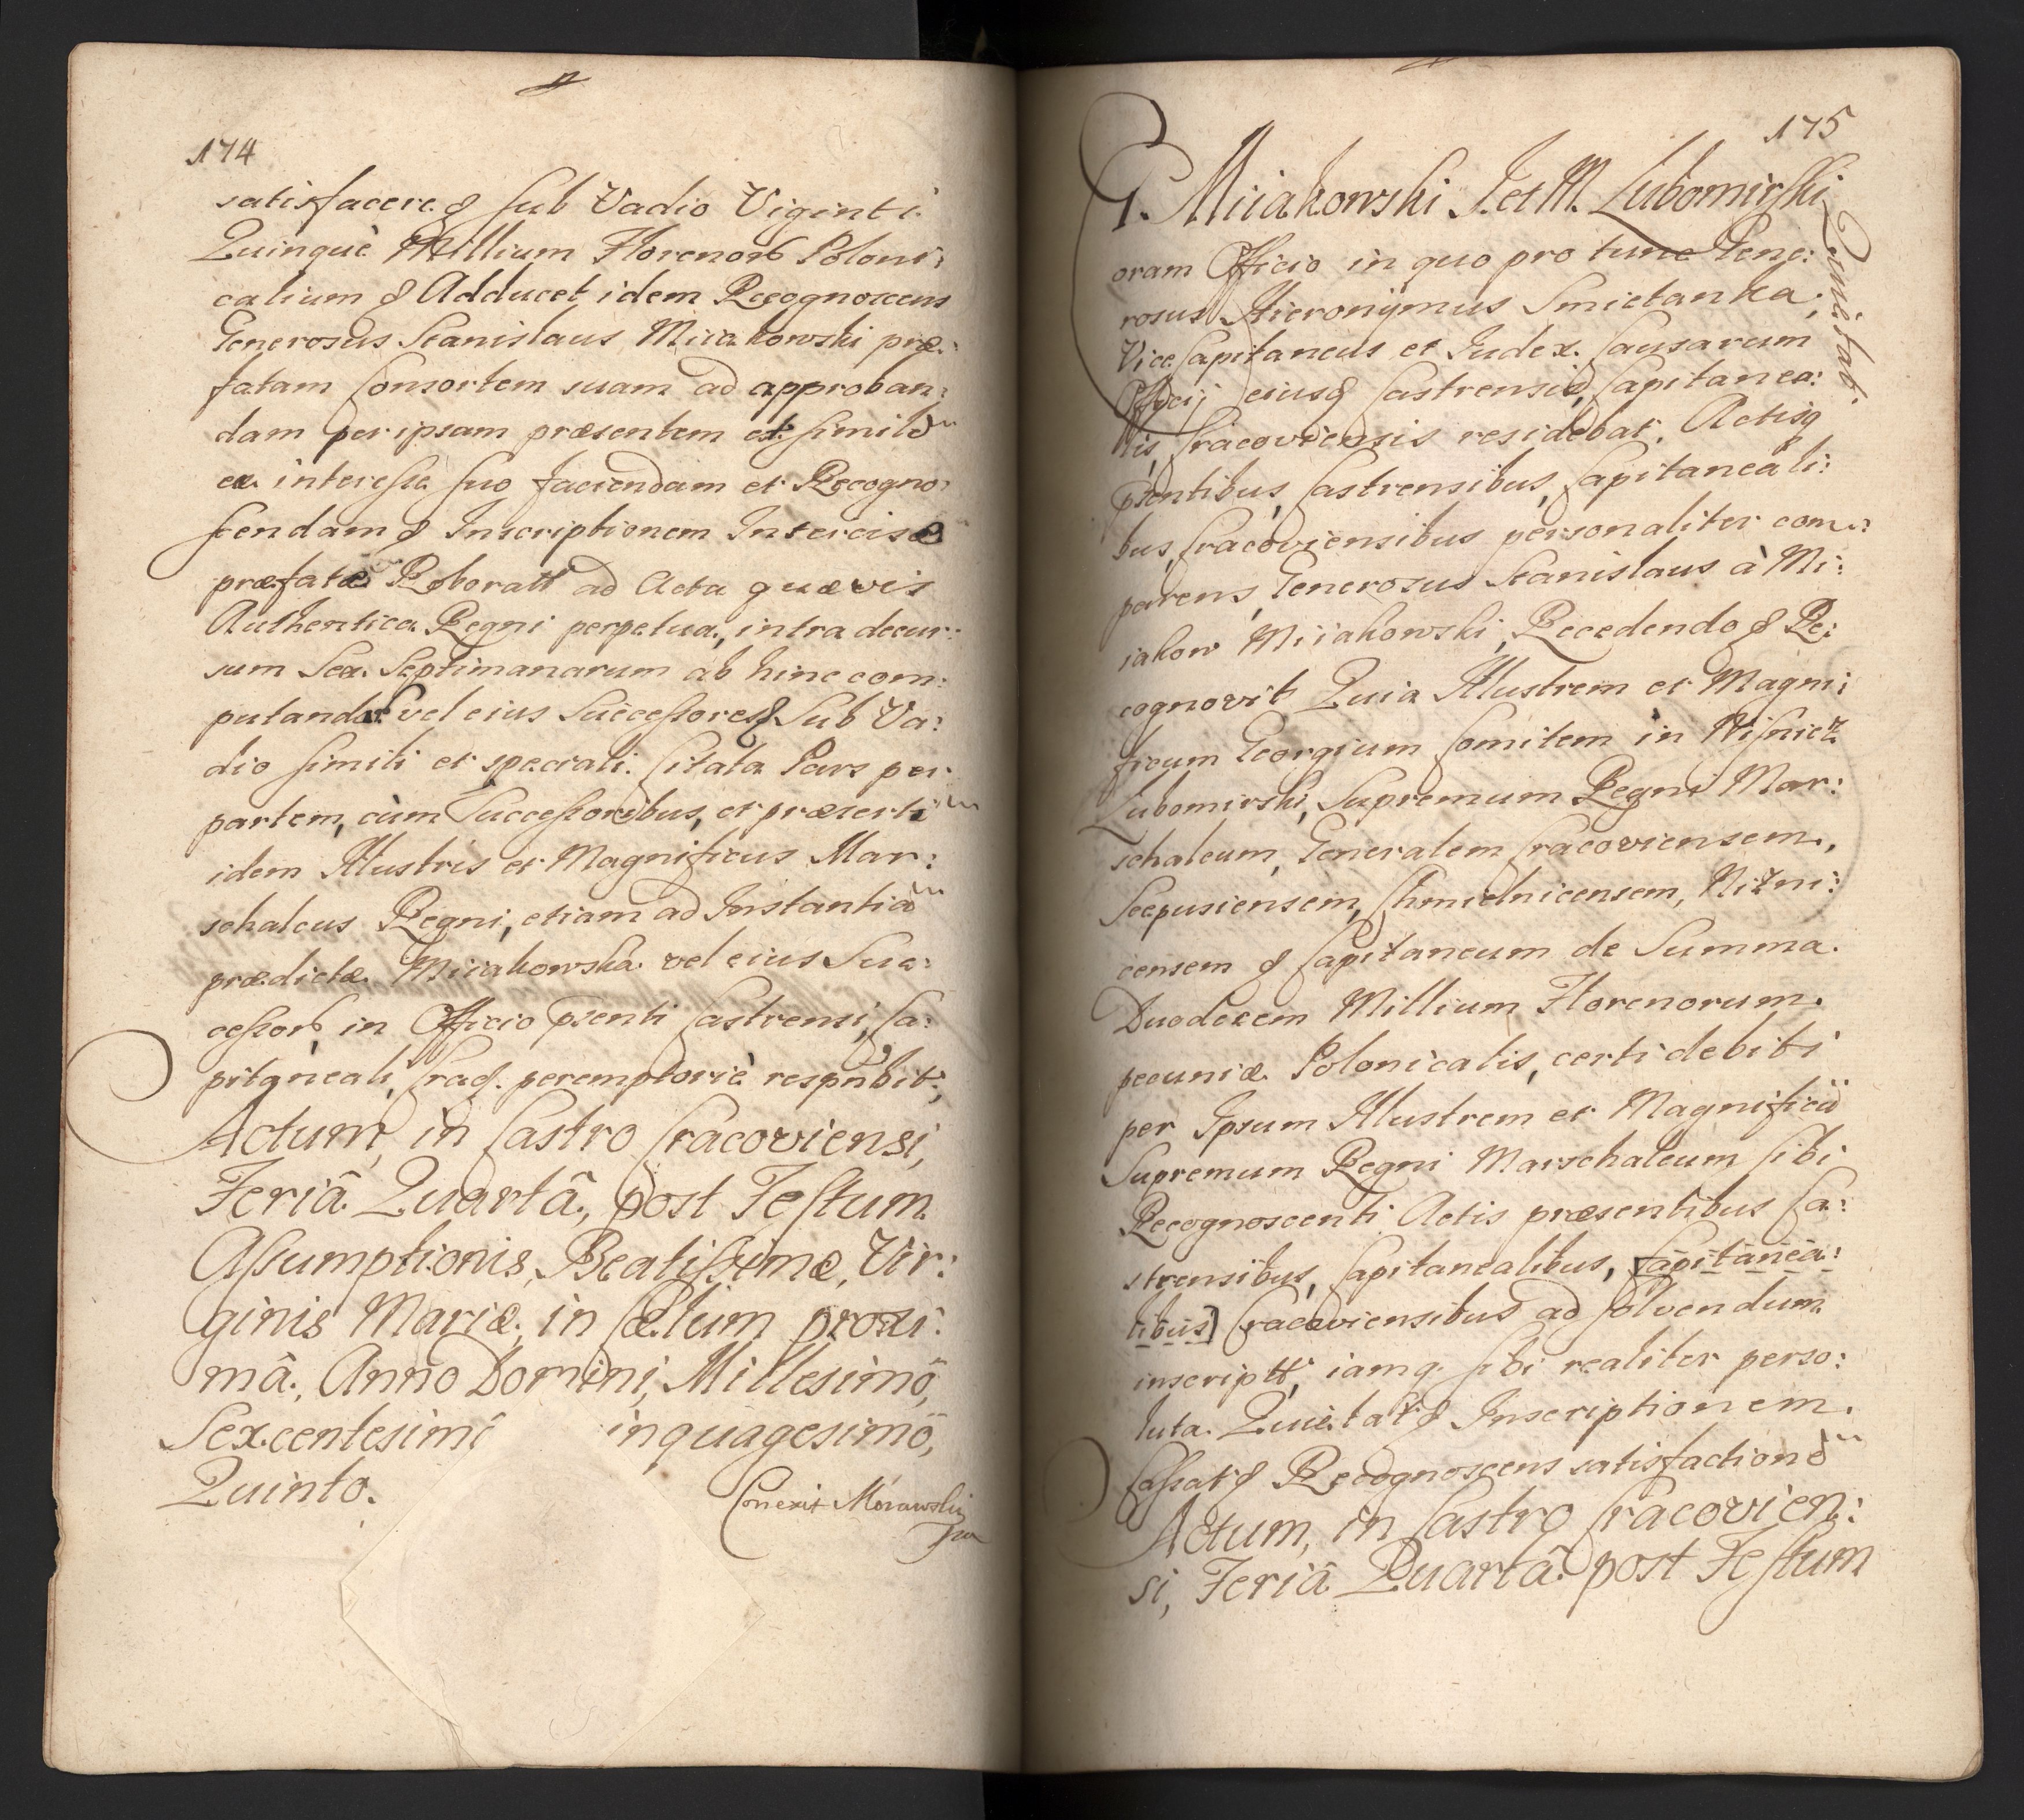 174
satisfacere & sub Vadio Viginti
Quinque Millium Florenor Poloni:
calium & Adducet idem Recognoscens
Generosus Stanislaus Miiakowski præ:
fatam Consortem suam ad approban:
dam per ipsam præsentem et simile
ex interesse suo faciendam et Recogno:
scendam & Inscriptionem Intercisæ
præfatæ Roboratt ad Acta quævis
Authentica Regni perpetua, intra decur:
sum Sex Septimanarum ab hinc com:
putandar vel eius Successores & Sub Va:
dio simili et speciali. Citata Pars per
partem, cùm Successoribus, et præserti
idem Illustris et Magnificus Mar:
schalcus Regni, etiam ad Instantia
prædictæ Miiakowska vel eius Suc:
cessor, in Officio psenti Castrensi, Ca:
pitaneali, Crac. peremptoriè respnbit;
Actum, in Castro Cracoviensi,
Feriâ Quartâ, post Festum
Assumptionis, Beatissimæ, Vir:
ginis Mariæ, in Cælum proxi:
mâ, Anno Domini, Millesimô,
Sexcentesimô inquagesimô,
Quinto.
Conexit Morawski
175
G. Miiakowski I. et M. Lubomirski
Quietat.
oram Officio in quo pro tunc Gene:
rosus Hieronÿmus Smietanka,
Vice Capitaneus et Iudex Causarum
Officij eiusq Castrensis, Capitanea:
lis, Cracoviensis residebat. Actisq
psentibus, Castrensibus, Capitaneali:
bus, Cracoviensibus personaliter com:
parens, Generosus Stanislaus à Mi:
iakow Miiakowski, Recedendo & Re:
cognovit Quia Illustrem et Magni:
ficum Georgium Comitem in Wisnicz
Lubomirski, Supremum Regni Mar:
schalcum, Generalem Cracoviensem,
Scepusiensem, Chmielnicensem, Nizni:
censem & Capitaneum de Summa
Duodecem Millium Florenorum
pecuniæ Polonicalis, certi debiti
per Ipsum Illustrem et Magnificũ
Supremum Regni Marschalcum sibi
Recognoscenti Actis præsentibus Ca:
strensibus, Capitanealibus, Capitanea:
libus] Cracoviensibus ad solvendum
inscriptt, iamq sibi realiter perso:
luta. Quietat & Inscriptionem
Cassat & Recognoscens satisfactione
Actum, in Castro Cracovien:
si, Feriâ Quartâ post Festum